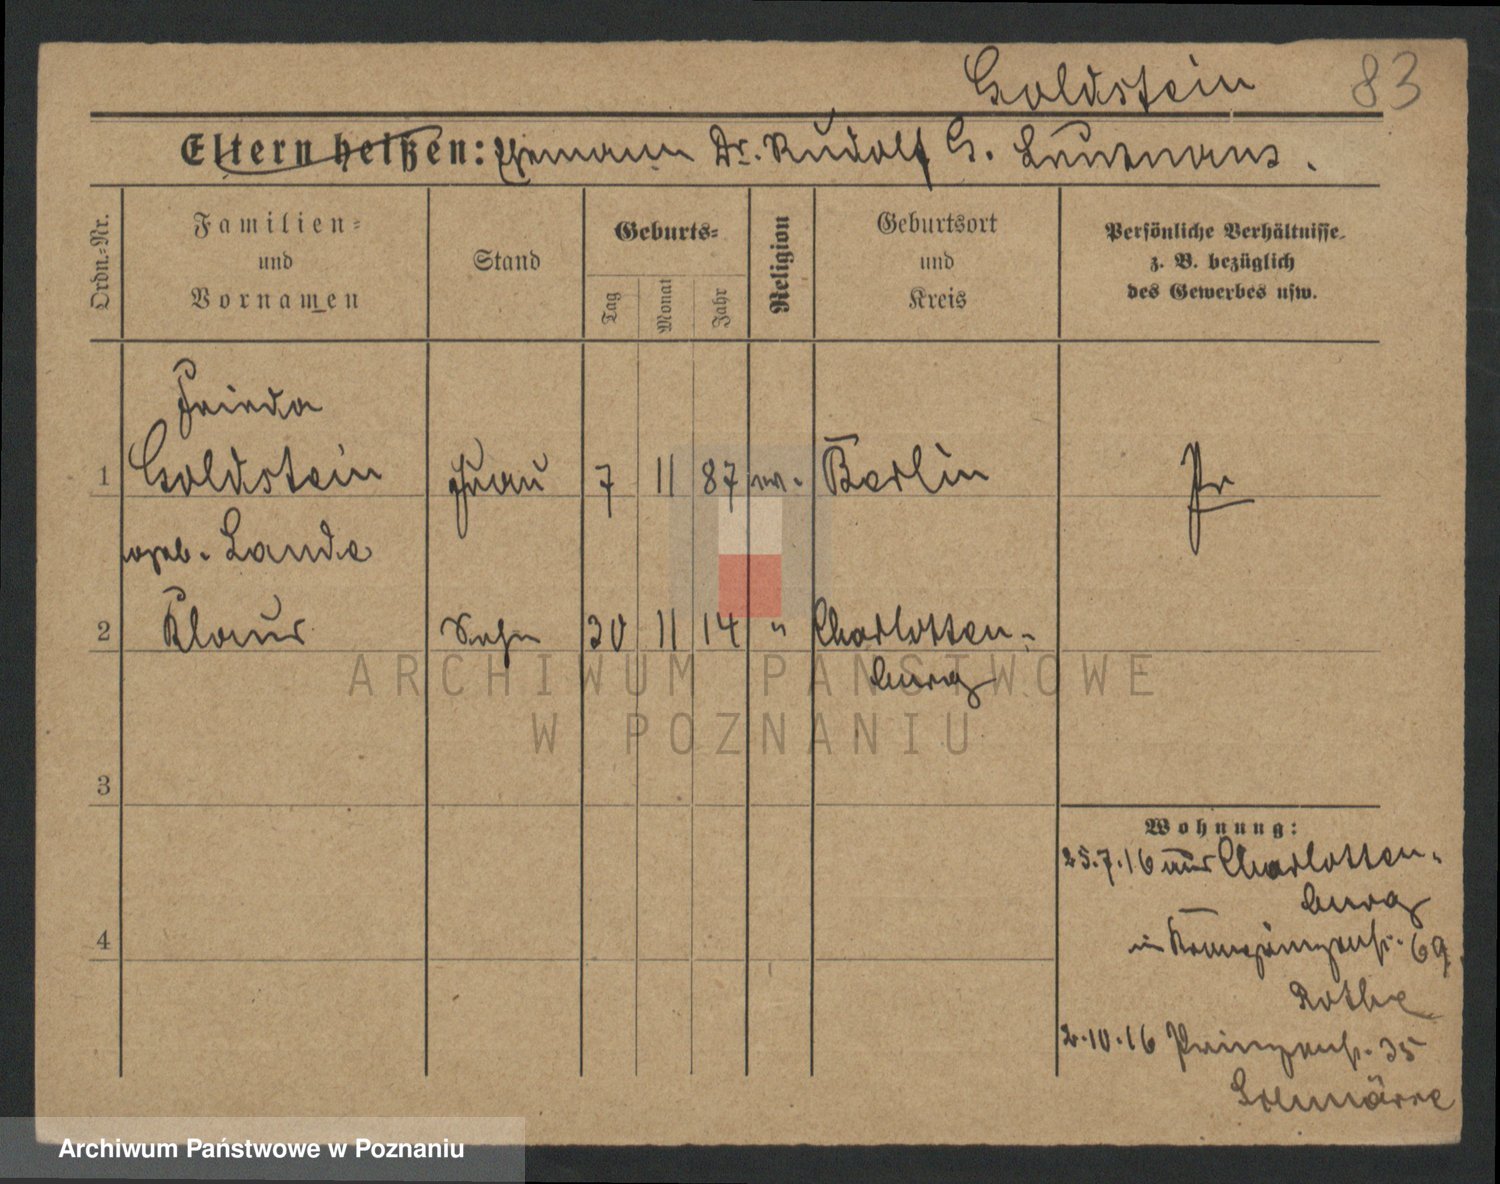 Goldstein 83
Eltern heißen: Ehemann Dr. Rudolf G.
Ordn.-Nr.
Familien-
und
Vornamen
Stand
Geburts-
Tag
Monat
Jahr
Religion
Geburtsort
und
Kreis
Persönliche Verhältnisse
z. B. bezüglich
des Gewerbes usw.
Frieda
1 Goldstein Frau 7 11 87 Berlin Pr
geb. Lande
2 Klaus Sohn 30 11 14 " Charlotten-
burg
3
Wohnung:
25.7.16 aus Charlotten-
burg
4
in Kronprinzenstr. 69
Rothe
2.10.16 Prinzenstr. 35
ARCHIWUM PAŃSTWOWE
W POZNANIU
Archiwum Państwowe w Poznaniu